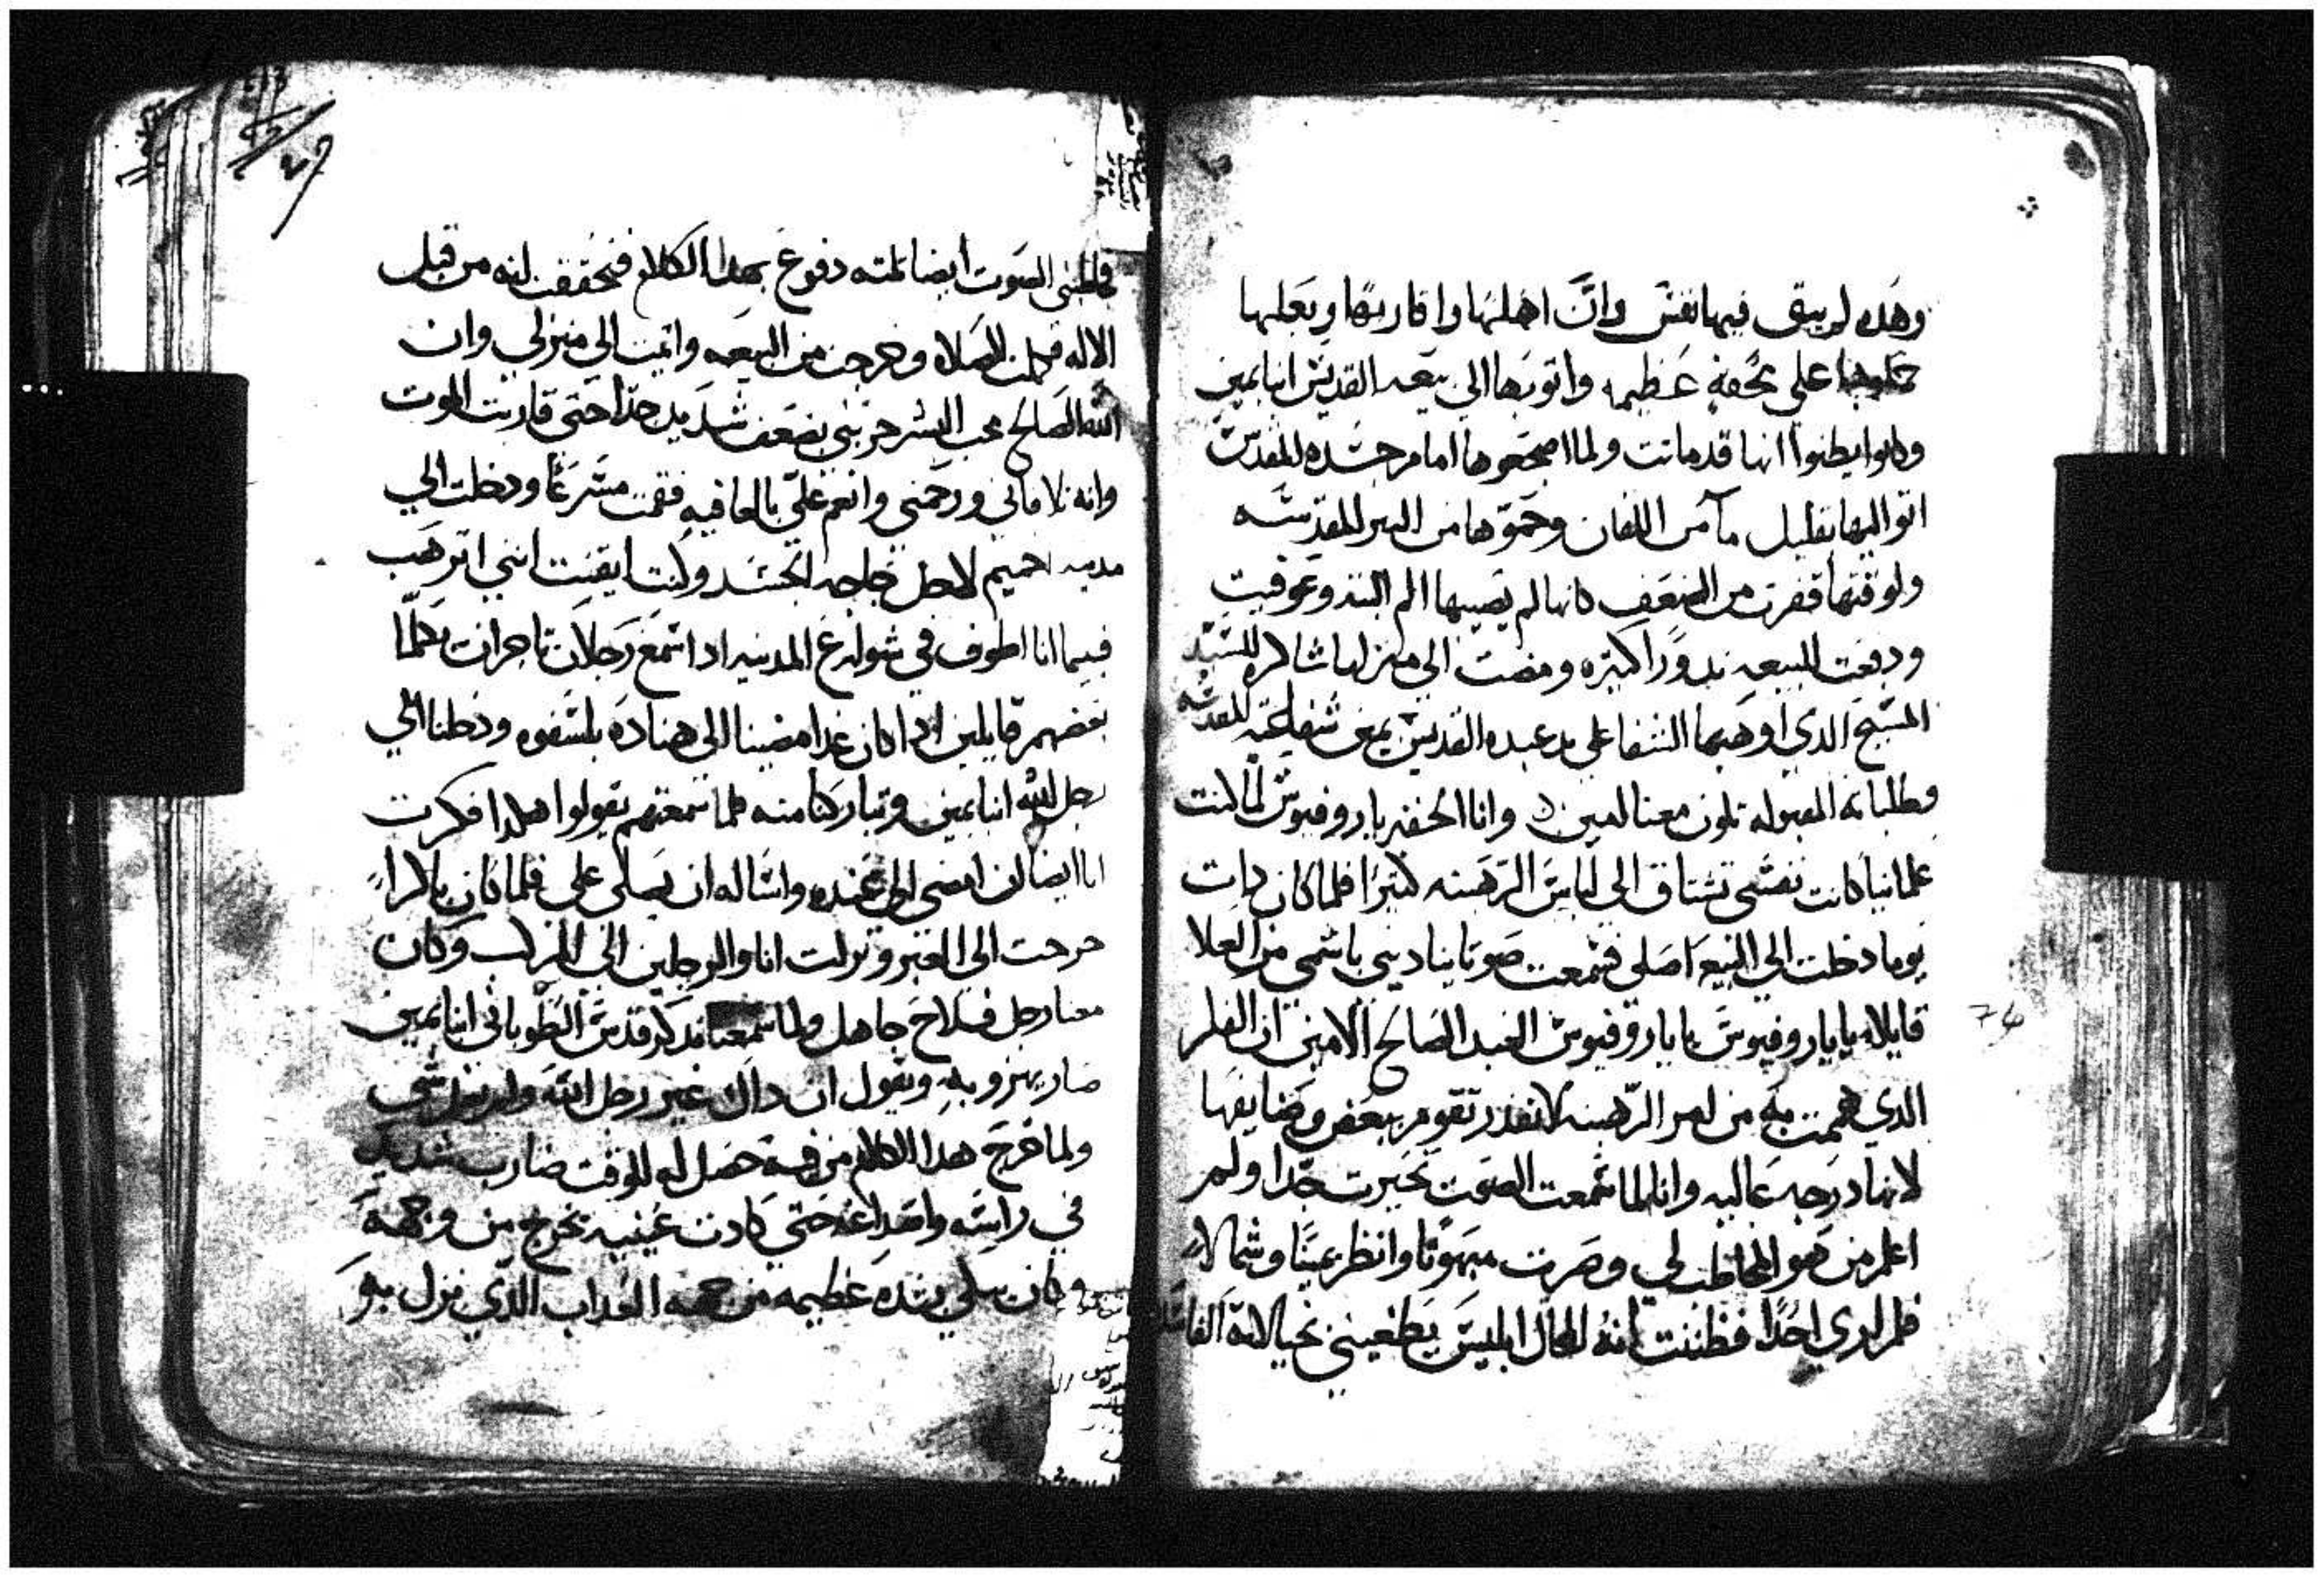 وهده لم يبقى فيها نفس وان اهلها واقاربها وبعلها
حملوها على محفه عظيمه واتوبها الي بيعه القديس انبا بمين
وكانوا يظنوا انها قد ماتت ولما اضجعوها امام جسده المقدس
اتوا اليها بقليل مآ من اللقان وحموها من البير المقدسه
ولوقتها قفرت من الضعف كانها لم يصيبها الم البته وعوفيت
ودفعت للبيعه ندورًا كتيره ومضت الي منزلها شاكره للسيد
المسيح الدي اوهبها الشفا على يد عبده القديس بمين شفاعته المقدسه
وطلباته المقبوله تكون معنا امين وانا الحقير باروفيوس لما كنت
علمانيا كانت نفسي تشتاق الى لباس الرهبنه كتيرًا فلما كان دات
يوما دخلت الي البيعه اصلى فسمعت صوتا يناديني باسمي من العلا
قايلا يا باروفيوس يا باروفيوس العبد الصالح الامين ان الفكر
الدي هممت به من امر الرهبنه لا تقدر تقوم ببعض وضايفها
لانها درجه عاليه وانا لما سمعت الصوت تحيرت جدا ولم
اعلم من هو المخاطب لي وصرت مبهوتا وانظر يمينًا وشمالا
فلم اري احدًا فظننت انه المحال ابليس يطغيني بخيالاته الفاسده
74
فاطبني الصوت ايضا تلته دفوع بهدا الكلام فتحققت انه من قبل
الاله فكملت الصلاه وخرجت من البيعه واتيت الي منزلي وان
الله الصالح محب البشر جربني بضعف شديد جدًا حتى قاربت الموت
وانه تلافاني ورحمني وانعم علي بالعافيه فقمت مسرعًا ودخلت الي
مدينه اخميم لاجل حاجه الجسد وكنت ايقنت انني اترهب
فبينما انا اطوف في شوارع المدينه اد اسمع رجلان تاجران تكلما
بعضهم قايلين ادا كان غدا مضينا الى هناده بلسفوه ودخلنا الي
رجل الله انبا بمين وتباركنا منه فلما سمعتهم يقولوا هكدا فكرت
انا ايضا ان امضي الي عنده واساله ان يصلي علي فلما كان باكرا
خرجت الى العبر ونزلت انا والرجلين الي المركب وكان
معنا رجل فلاح جاهل ولما سمعنا ندكر قدس الطوباني انبا بمين
صار يهزو به ويقول ان داك غير رجل الله ولم يعمل شي
ولما خرج هدا الكلام من فمه حصل له للوقت ضارب شديد
في راسه واصداغه حتى كادت عينيه تخرج من وجهه
وكان يبكي بشده عظيمه من جهه العداب الدي نزل به